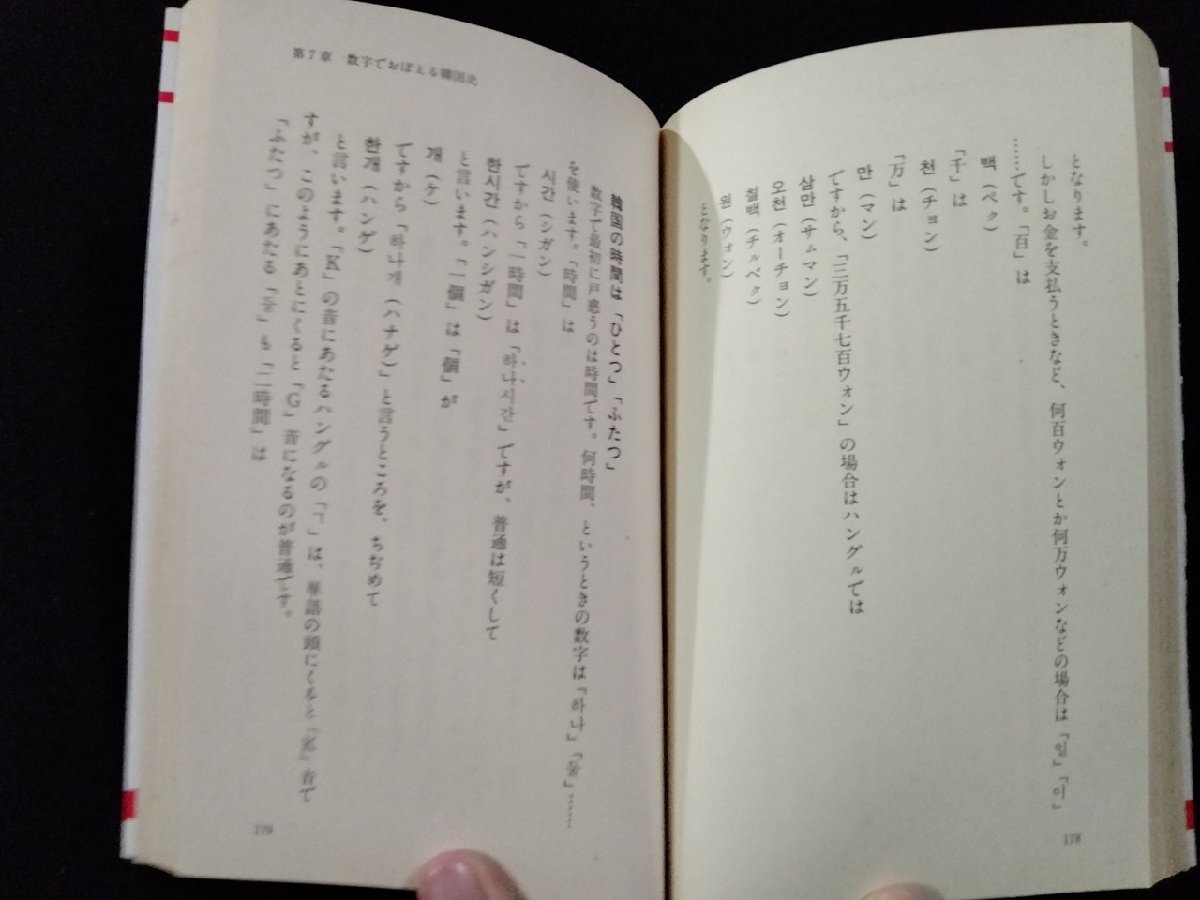 となります。
しかしお金を支払うときなど、何百ウォンとか何万ウォンなどの場合は「일」「이」
……です。「百」は
백（ペク）
「千」は
천（チョン）
「万」は
만（マン）
ですから、「三万五千七百ウォン」の場合はハングルでは
삼만（サムマン）
오천（オーチョン）
칠백（チルペク）
원（ウォン）
となります。
178
第7章 数字でおぼえる韓国史
韓国の時間は「ひとつ」「ふたつ」
数字で最初に戸惑うのは時間です。何時間、というときの数字は「하나」「둘」……
を使います。「時間」は
시간（シガン）
ですから「一時間」は「하나시간」ですが、普通は短くして
한시간（ハンシガン）
と言います。「一個」は「個」が
개（ケ）
ですから「하나개（ハナゲ）」と言うところを、ちぢめて
한개（ハンゲ）
と言います。「K」の音にあたるハングルの「ㄱ」は、単語の頭にくると「K」音で
すが、このようにあとにくると「G」音になるのが普通です。
「ふたつ」にあたる「둘」も「二時間」は
179